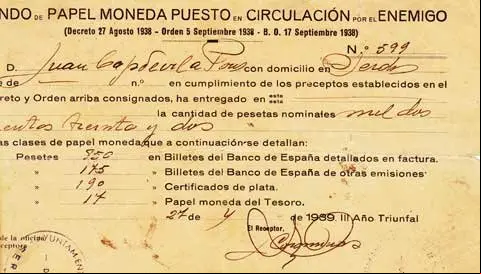 NDO DE PAPEL MONEDA PUESTO EN CIRCULACIÓN POR EL ENEMIGO
(Decreto 27 Agosto 1938 - Orden 5 Septiembre 1938 - B. O. 17 Septiembre 1938)
N.º 599
D. Juan Capdevila Pons con domicilio en
e de n.º en cumplimiento de los preceptos establecidos en el
reto y Orden arriba consignados, ha entregado en este esta
la cantidad de pesetas nominales mil dos
cientos treinta y dos
as clases de papel moneda que a continuación se detallan:
Pesetas 850 en Billetes del Banco de España detallados en factura.
» 175 » Billetes del Banco de España de otras emisiones
» 190 » Certificados de plata.
» 17 » Papel moneda del Tesoro.
27 de 4 de 1939. III Año Triunfal
El Receptor,
de la oficina
ceptora
UNTAMIEN